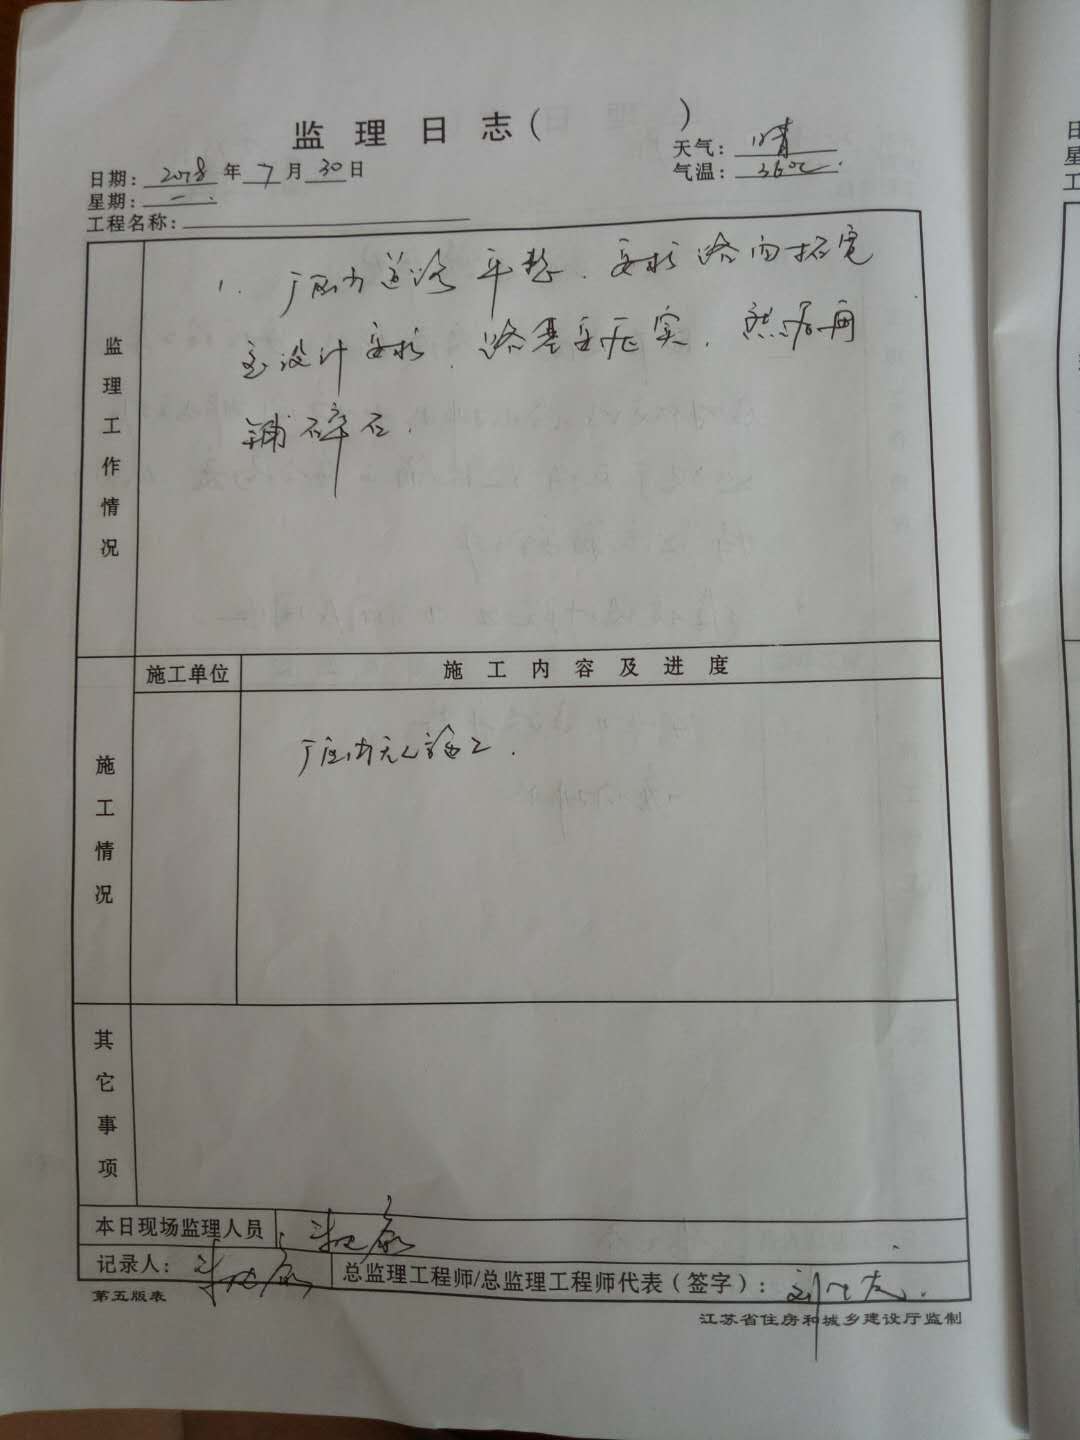 监 理 日 志 (          )
日期: 2018 年 7 月 30 日
天气: 晴
星期: 一.
气温: 36℃.
工程名称:
监理工作情况
1. 厂区内道路平整. 要求路面拓宽
至设计要求. 路基要压实. 然后再
铺碎石.
施工单位
施 工 内 容 及 进 度
施工情况
厂区内无人施工.
其它事项
本日现场监理人员
记录人:
总监理工程师/总监理工程师代表(签字):
第五版表
江苏省住房和城乡建设厅监制